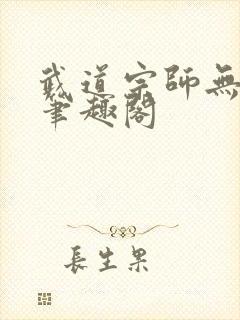 武道宗師無
筆趣閣
長生果